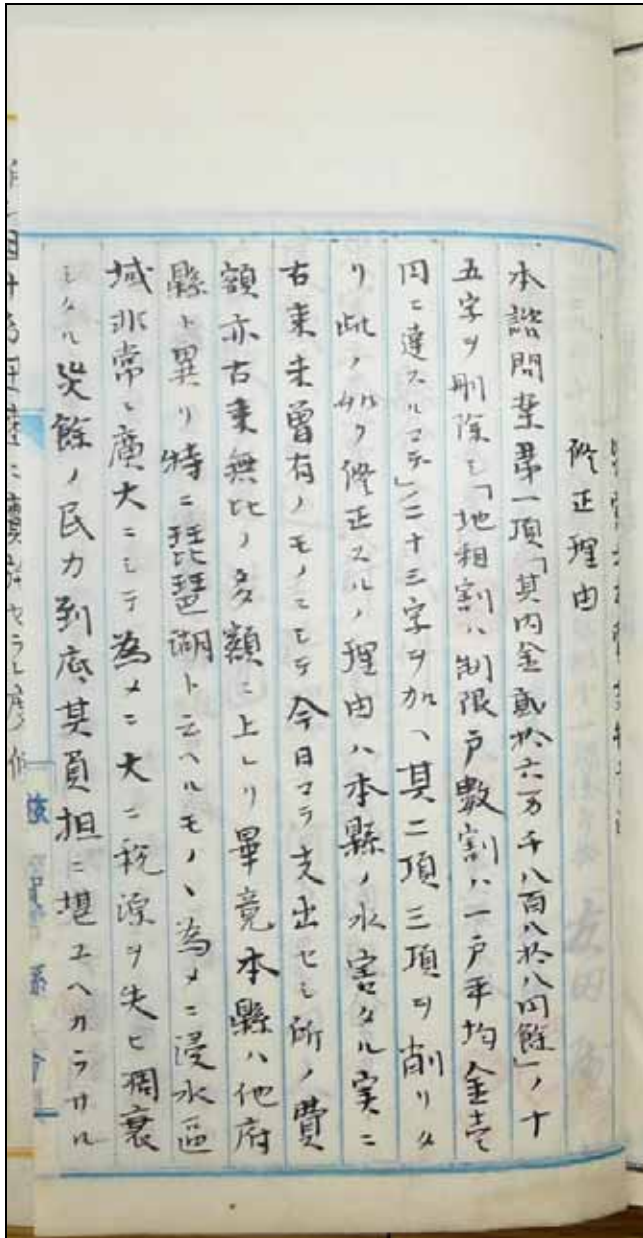 修正理由
本諮問案第一項「其内金貳拾六万千八百八拾八円餘」ノ十
五字ヲ削除シ「地租割ハ制限戸數割ハ一戸平均金壱
円ニ達スルマデ」ノ二十三字ヲ加ヘ其二項三項ヲ削リタ
リ此ノ如ク修正スルノ理由ハ本縣ノ水害タル実ニ
古来未曾有ノモノニシテ今日マテ支出セシ所ノ費
額亦古来無比ノ多額ニ上レリ畢竟本縣ハ他府
縣ト異リ特ニ琵琶湖ト云ヘルモノヽ為メニ浸水區
域非常ニ廣大ニシテ為メニ大ニ税源ヲ失ヒ凋衰
シタル災餘ノ民力到底其負担ニ堪ユヘカラサル